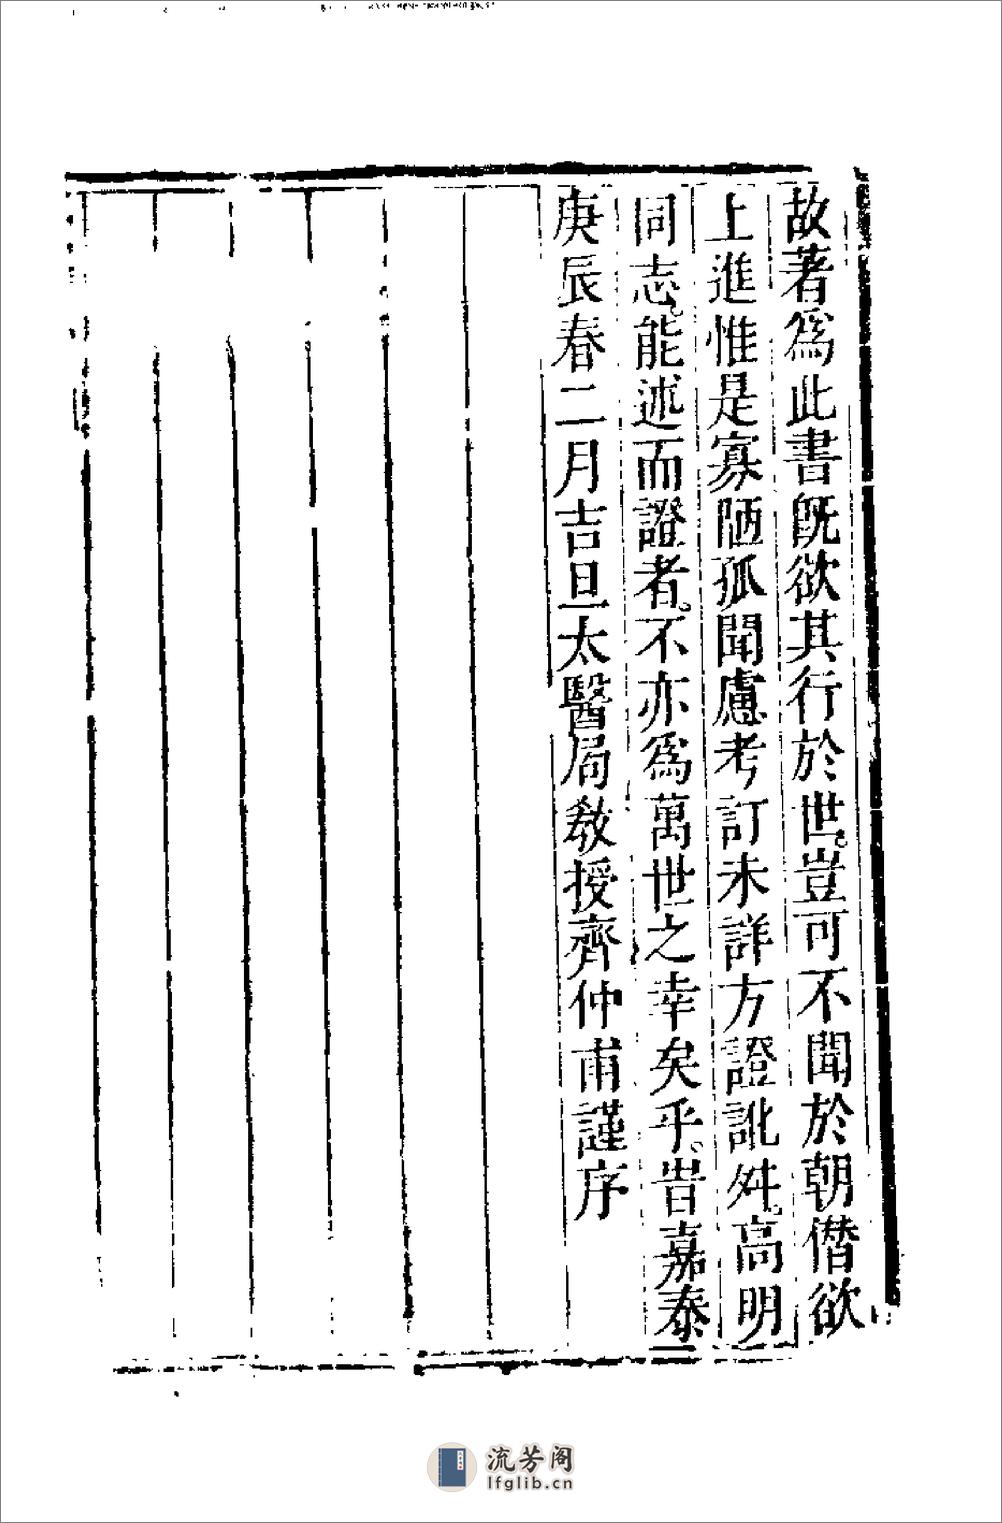 故著爲此書旣欲其行於世。豈可不聞於朝僭欲
上進惟是寡陋孤聞慮考訂未詳方證訛舛。高明
同志。能述而證者。不亦爲萬世之幸矣乎。旹嘉泰
庚辰春二月吉旦太醫局敎授齊仲甫謹序
流芳阁
lfglib.cn